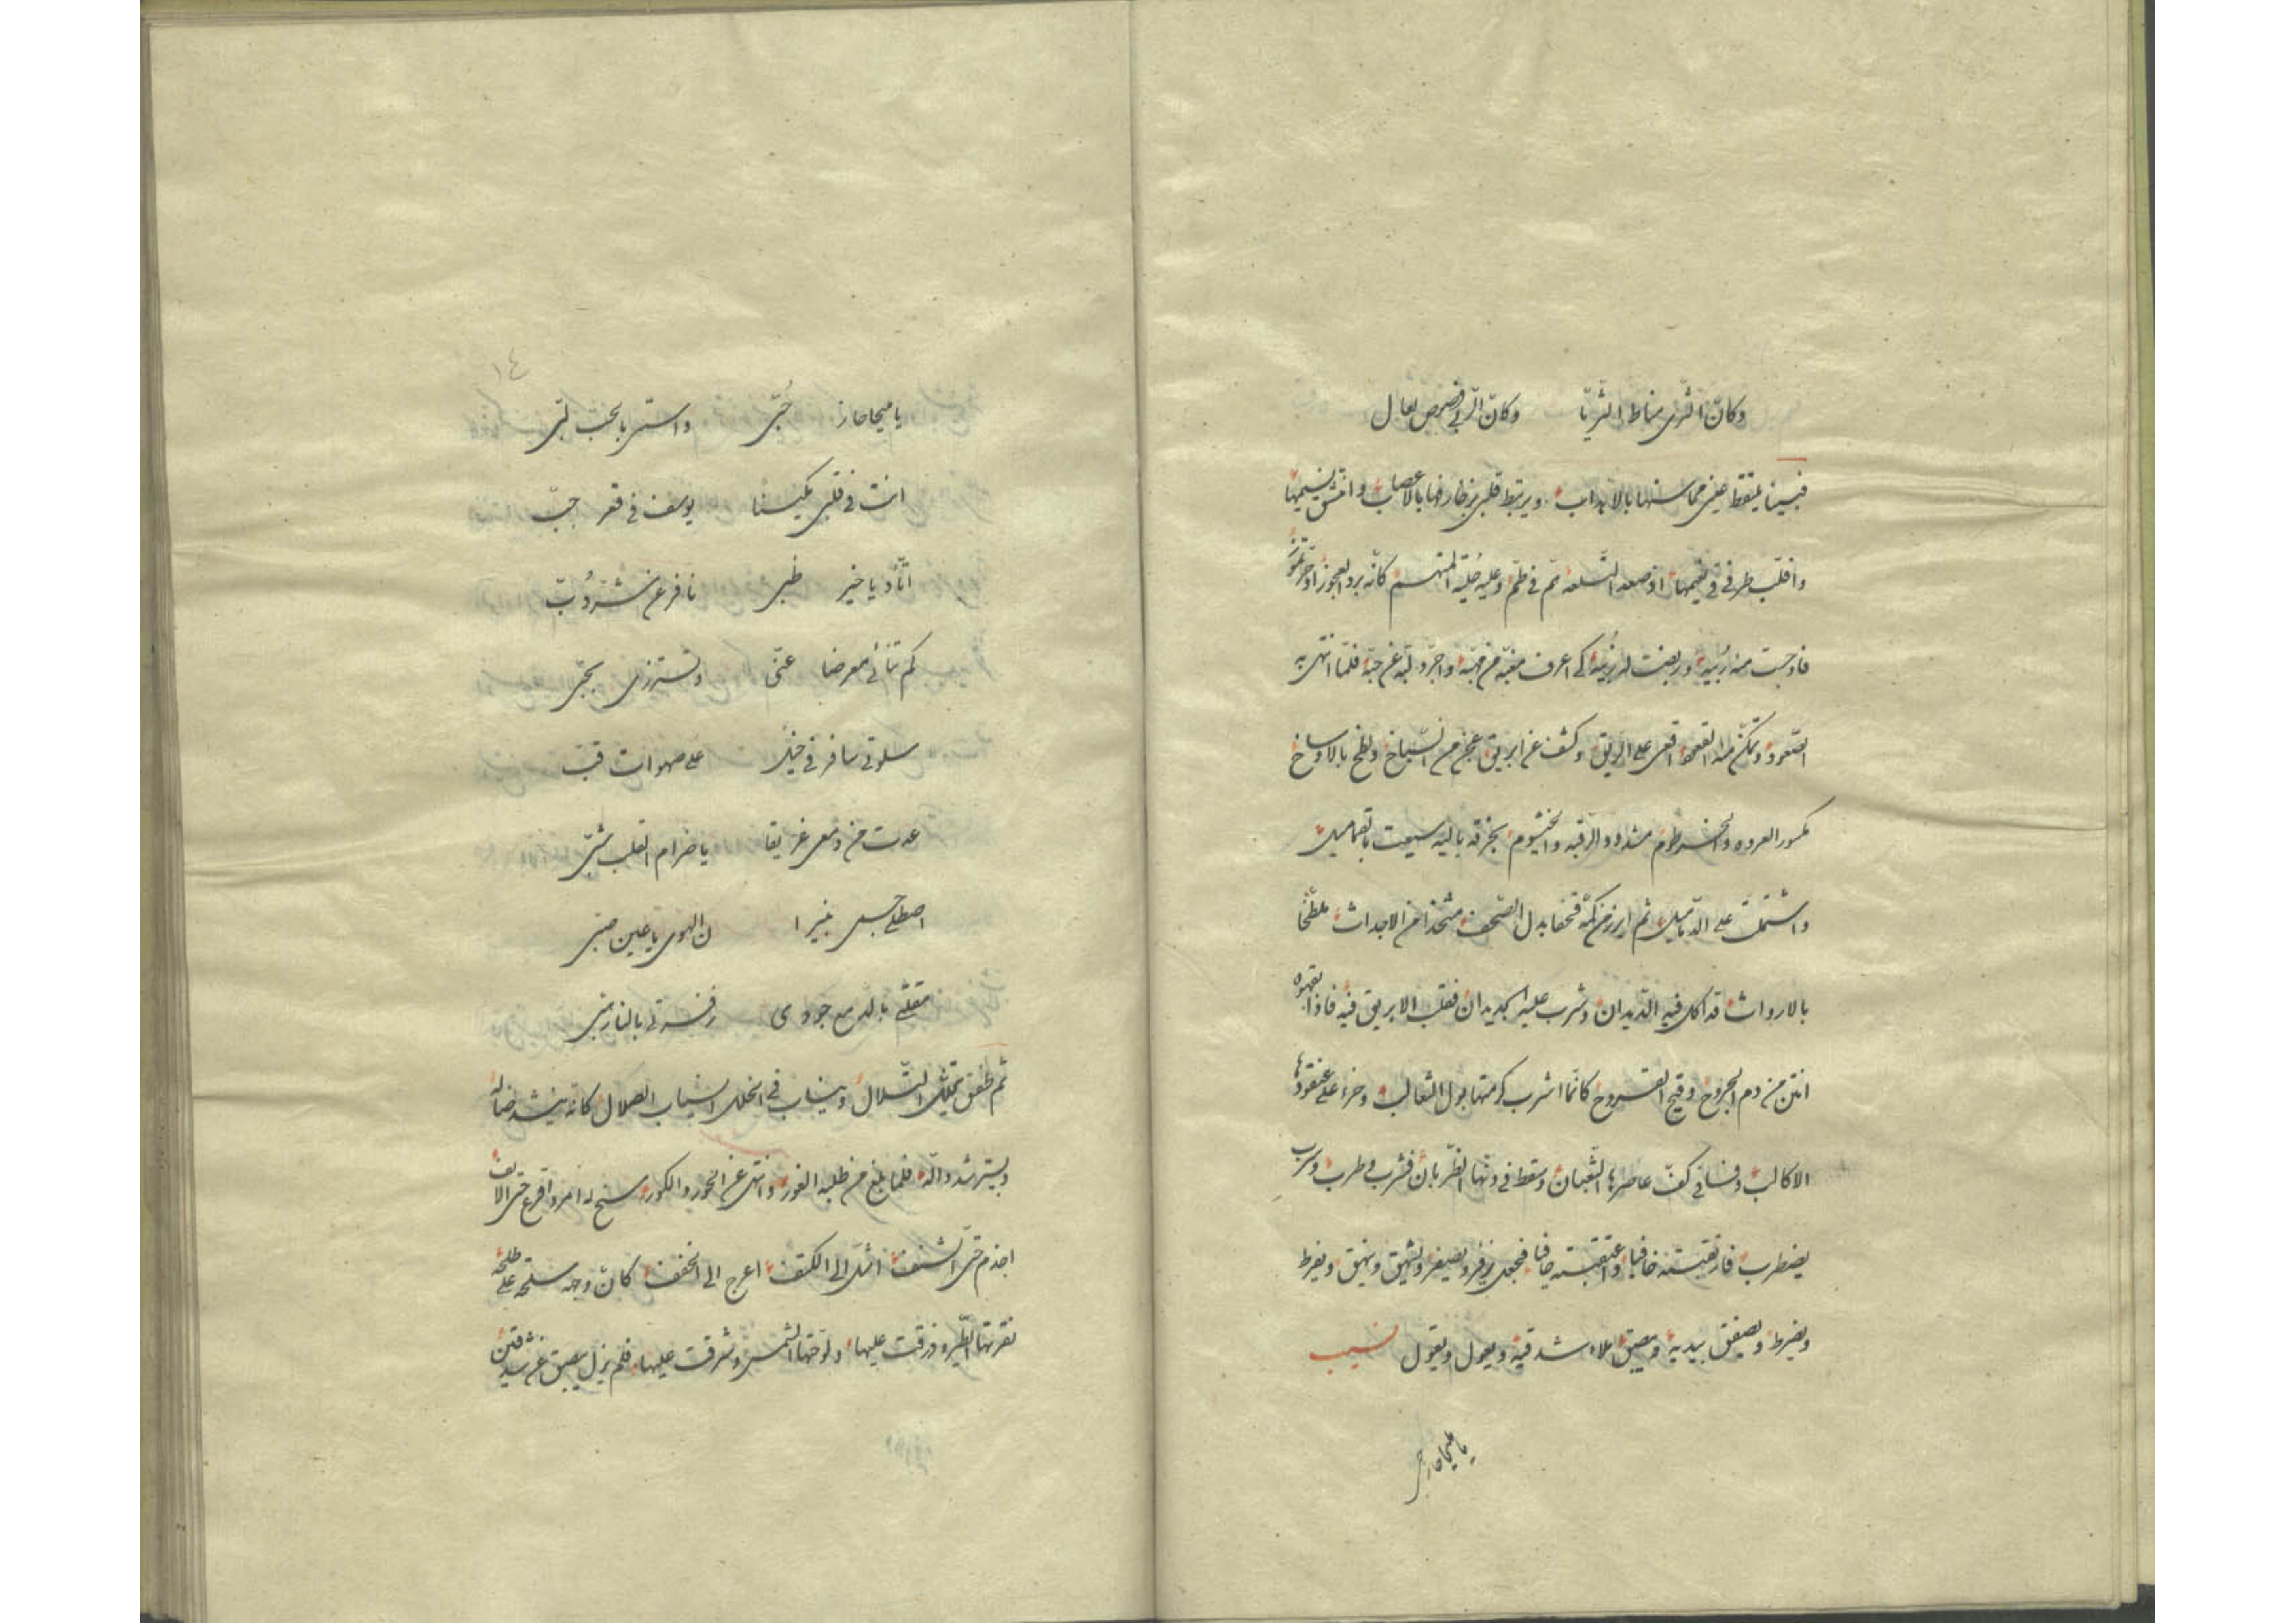 وكانّ الثرى مناط الثريّا وكانّ الربى قصرص لعال
فبينا يلتقط عينى محاسنها بالاهداب ويرتبط قلبى بزخارفها بالاعصاب وانتشق نسيمها
واقلب طرفى فى نعيمها اذ صعد التلعه تم فى طمّ وعليه حلية المتهم كانه برد العجوز او حرّ تموز
فاوجبت منه ربية وربضت له زبية كى اعرف مغبّه من مهبّه واجرّد لبّه عن حبّه فلمّا انتهى به
الصعود وتمكن منه القعود اقعى على الريق وكشف عن ابريق عجن من السباخ ولطخ بالاوساخ
مكسور العروه والخرطوم مشدود الرقبه والخيشوم بخرقه باليه سيعت بالقماميل
واشتملت على الدماميل ثم ابرز من كمّه قحفا بدل الصحف متخذا من الاجداث ملطّخا
بالارواث قد اكل فيه الديدان وشرب عليه الجديدان فقلب الابريق فيه فاذا بقهوه
انتن من دم الجروح وقيح القروح كانّما اشرب كرمتها بول الثعالب وخرء على عنقودها
الاكالب وفسا فى كفّ عاصرها الثعبان وسقط فى دنّها الظربان فشرب وطرب وسرب
يضطرب فارتقبته خافيا واعتقبته حافيا فجعل يزفر ويصفر ويشهق وينهق ويفرط
ويضرط ويصفق بيديه ويبصق ملاء شدقيه ويعول ويقول نسيب
يا مليحا حاز
١٤
يا مليحا حاز حُبّى واسترّ بالحبّ لبّى
انت فى قلبى مكينا يوسف فى قعر جبّ
اتّأد يا خير ظبى نافر عن شرّ دُبّ
كم تنأى معرضا عنّى وتستزرى بحبّى
سلوتى سافر فى خيل على صهوات قبّ
عدت من دمعى غريقا يا ضرام القلب شبّى
اصطلى جسمى بنيرا ن الهوى يا عين صبّى
مقلتى بالدمع جودى زفرتى بالنار هبّى
ثم طفق بتلك التلال وينساب فى الخلل انسياب الصلال كانه ينشد ضاله
ويسترشد دالّه فلما بلغ من طلبه الغور وانتهى عن الحور والكور سنح له امرد اقرع حتى الانف
اجذم حتى الشنف اشلّ الى الكتف اعرج الى الخف كانّ وجهه سلحة على طلحة
نقرتها الطير وزرقت عليها ولوّحتها الشمس وشرقت عليها فلم يزل يبصق عن شدقين